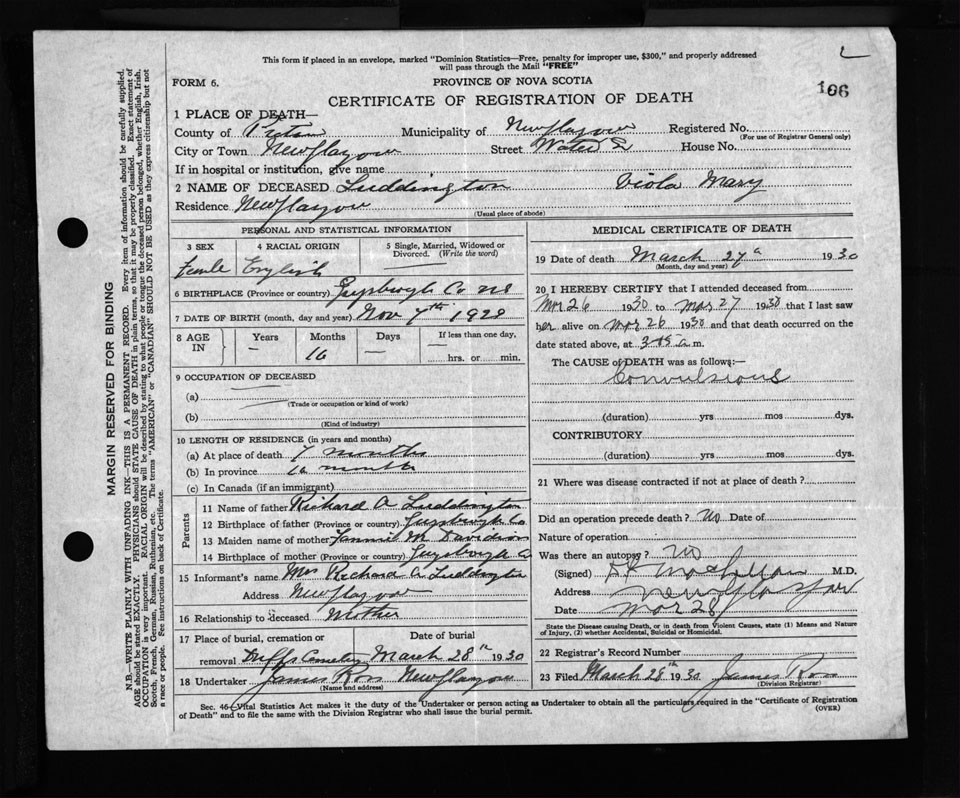 This form if placed in an envelope, marked "Dominion Statistics—Free, penalty for improper use, $300," and properly addressed
will pass through the Mail "FREE"
L
FORM 6.
PROVINCE OF NOVA SCOTIA
166
CERTIFICATE OF REGISTRATION OF DEATH
1 PLACE OF DEATH—
County of Pictou Municipality of New Glasgow Registered No.
(For use of Registrar General only)
City or Town New Glasgow Street Water St House No.
If in hospital or institution, give name
2 NAME OF DECEASED Luddington Viola Mary
Residence New Glasgow
(Usual place of abode)
PERSONAL AND STATISTICAL INFORMATION
3 SEX 4 RACIAL ORIGIN 5 Single, Married, Widowed or Divorced. (Write the word)
Female English
6 BIRTHPLACE (Province or country) Guysborough Co NS
7 DATE OF BIRTH (month, day and year) Nov 7th 1928
8 AGE IN Years Months Days If less than one day,
– 16 — — hrs. or min.
9 OCCUPATION OF DECEASED
(a)
(Trade or occupation or kind of work)
(b)
(Kind of industry)
10 LENGTH OF RESIDENCE (in years and months)
(a) At place of death 7 months
(b) In province 16 months
(c) In Canada (if an immigrant)
Parents
11 Name of father Richard A Luddington
12 Birthplace of father (Province or country) Guysborough Co
13 Maiden name of mother Fannie M Davidson
14 Birthplace of mother (Province or country) Guysborough Co
15 Informant's name Mrs Richard A Luddington
Address New Glasgow
16 Relationship to deceased Mother
17 Place of burial, cremation or removal Duffs Cemetery Date of burial March 28th 1930
18 Undertaker James Ross New Glasgow
(Name and address)
MEDICAL CERTIFICATE OF DEATH
19 Date of death March 27th 1930
(Month, day and year)
20 I HEREBY CERTIFY that I attended deceased from
Mar 26 1930 to Mar 27 1930 that I last saw
her alive on Mar 26 1930 and that death occurred on the
date stated above, at 3 15 a m.
The CAUSE of DEATH was as follows:—
Convulsions
(duration) yrs mos dys.
CONTRIBUTORY
(duration) yrs mos dys.
21 Where was disease contracted if not at place of death?
Did an operation precede death? No Date of
Nature of operation
Was there an autopsy? No
(Signed) M.D.
Address New Glasgow
Date Mar 28
State the Disease causing Death, or in death from Violent Causes, state (1) Means and Nature
of Injury, (2) whether Accidental, Suicidal or Homicidal.
22 Registrar's Record Number
23 Filed March 28th 1930 James Ross
(Division Registrar)
Sec. 46—Vital Statistics Act makes it the duty of the Undertaker or person acting as Undertaker to obtain all the particulars required in the "Certificate of Registration
of Death" and to file the same with the Division Registrar who shall issue the burial permit. (OVER)
MARGIN RESERVED FOR BINDING
N.B.—WRITE PLAINLY WITH UNFADING INK—THIS IS A PERMANENT RECORD. Every item of information should be carefully supplied.
AGE should be stated EXACTLY. PHYSICIANS should STATE CAUSE OF DEATH in plain terms, so that it may be properly classified. Exact statement of
OCCUPATION is very important. RACIAL ORIGIN will be described by stating to what people or tongue the deceased person belonged, whether English, Irish,
Scotch, French, German, Russian, Ruthenian, etc. The terms "AMERICAN" or "CANADIAN" SHOULD NOT BE USED as they express citizenship but not
a race or people. Fee instructions on back of Certificate.